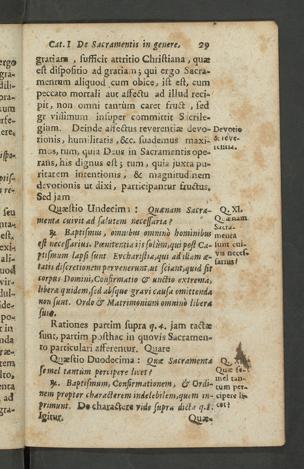 Cat. I De Sacramentis in genere. 29
gratiam, sufficit attritio Christiana, quæ
est dispositio ad gratiam; qui ergo Sacra-
mentum aliquod cum obice, ist est, cum
peccato mortali aut affectu ad illud reci-
pit, non omni tantùm caret fructu, sed
gravissimum insuper committit Sacrile-
gium. Deinde affectus reverentiæ devo-
tionis, humilitatis, &c. suademus maxi-
mus, tum, quia Deus in Sacramentis ope-
rans, his dignus est; tum, quia juxta pu-
ritatem intentionis, & magnitudinem
devotionis ut dixi, participantur fructus,
Sed jam
Devotio
& reve-
rentia.
Quæstio Undecima: Quænam Sacra-
menta cuivit ad salutem necessaria?
℞. Baptismus, omnibus omnino hominibus
est necessarius. Pœnitentia iis solùm, qui post Ca-
ptismum lapsi sunt. Eucharistia, qui ad illam æ-
tatis discretionem pervenerunt, ut sciant, quid sit
corpus Domini, Confirmatio & unctio extrema,
libera quidem, sed absque gravi causa omittenda
non sunt. Ordo & Matrimonium omninò libera
sunt.
Q. XI.
Quænam
Sacra-
menta
sunt cui-
vis neces-
saria?
Rationes partim supra q. 4. jam tactæ
sunt, partim posthac in quovis Sacramen-
to particulari afferentur. Quare
Quæstio Duodecima: Quæ Sacramenta
semel tantùm percipere licet?
℞. Baptismum, Confirmationem, & Ordi-
nem propter characterem indelebilem, quem im-
primunt. De charactere vide supra dicta q. 8.
Igitur. Quæ-
Quæ se-
mel tan-
tùm per-
cipere li-
cet?